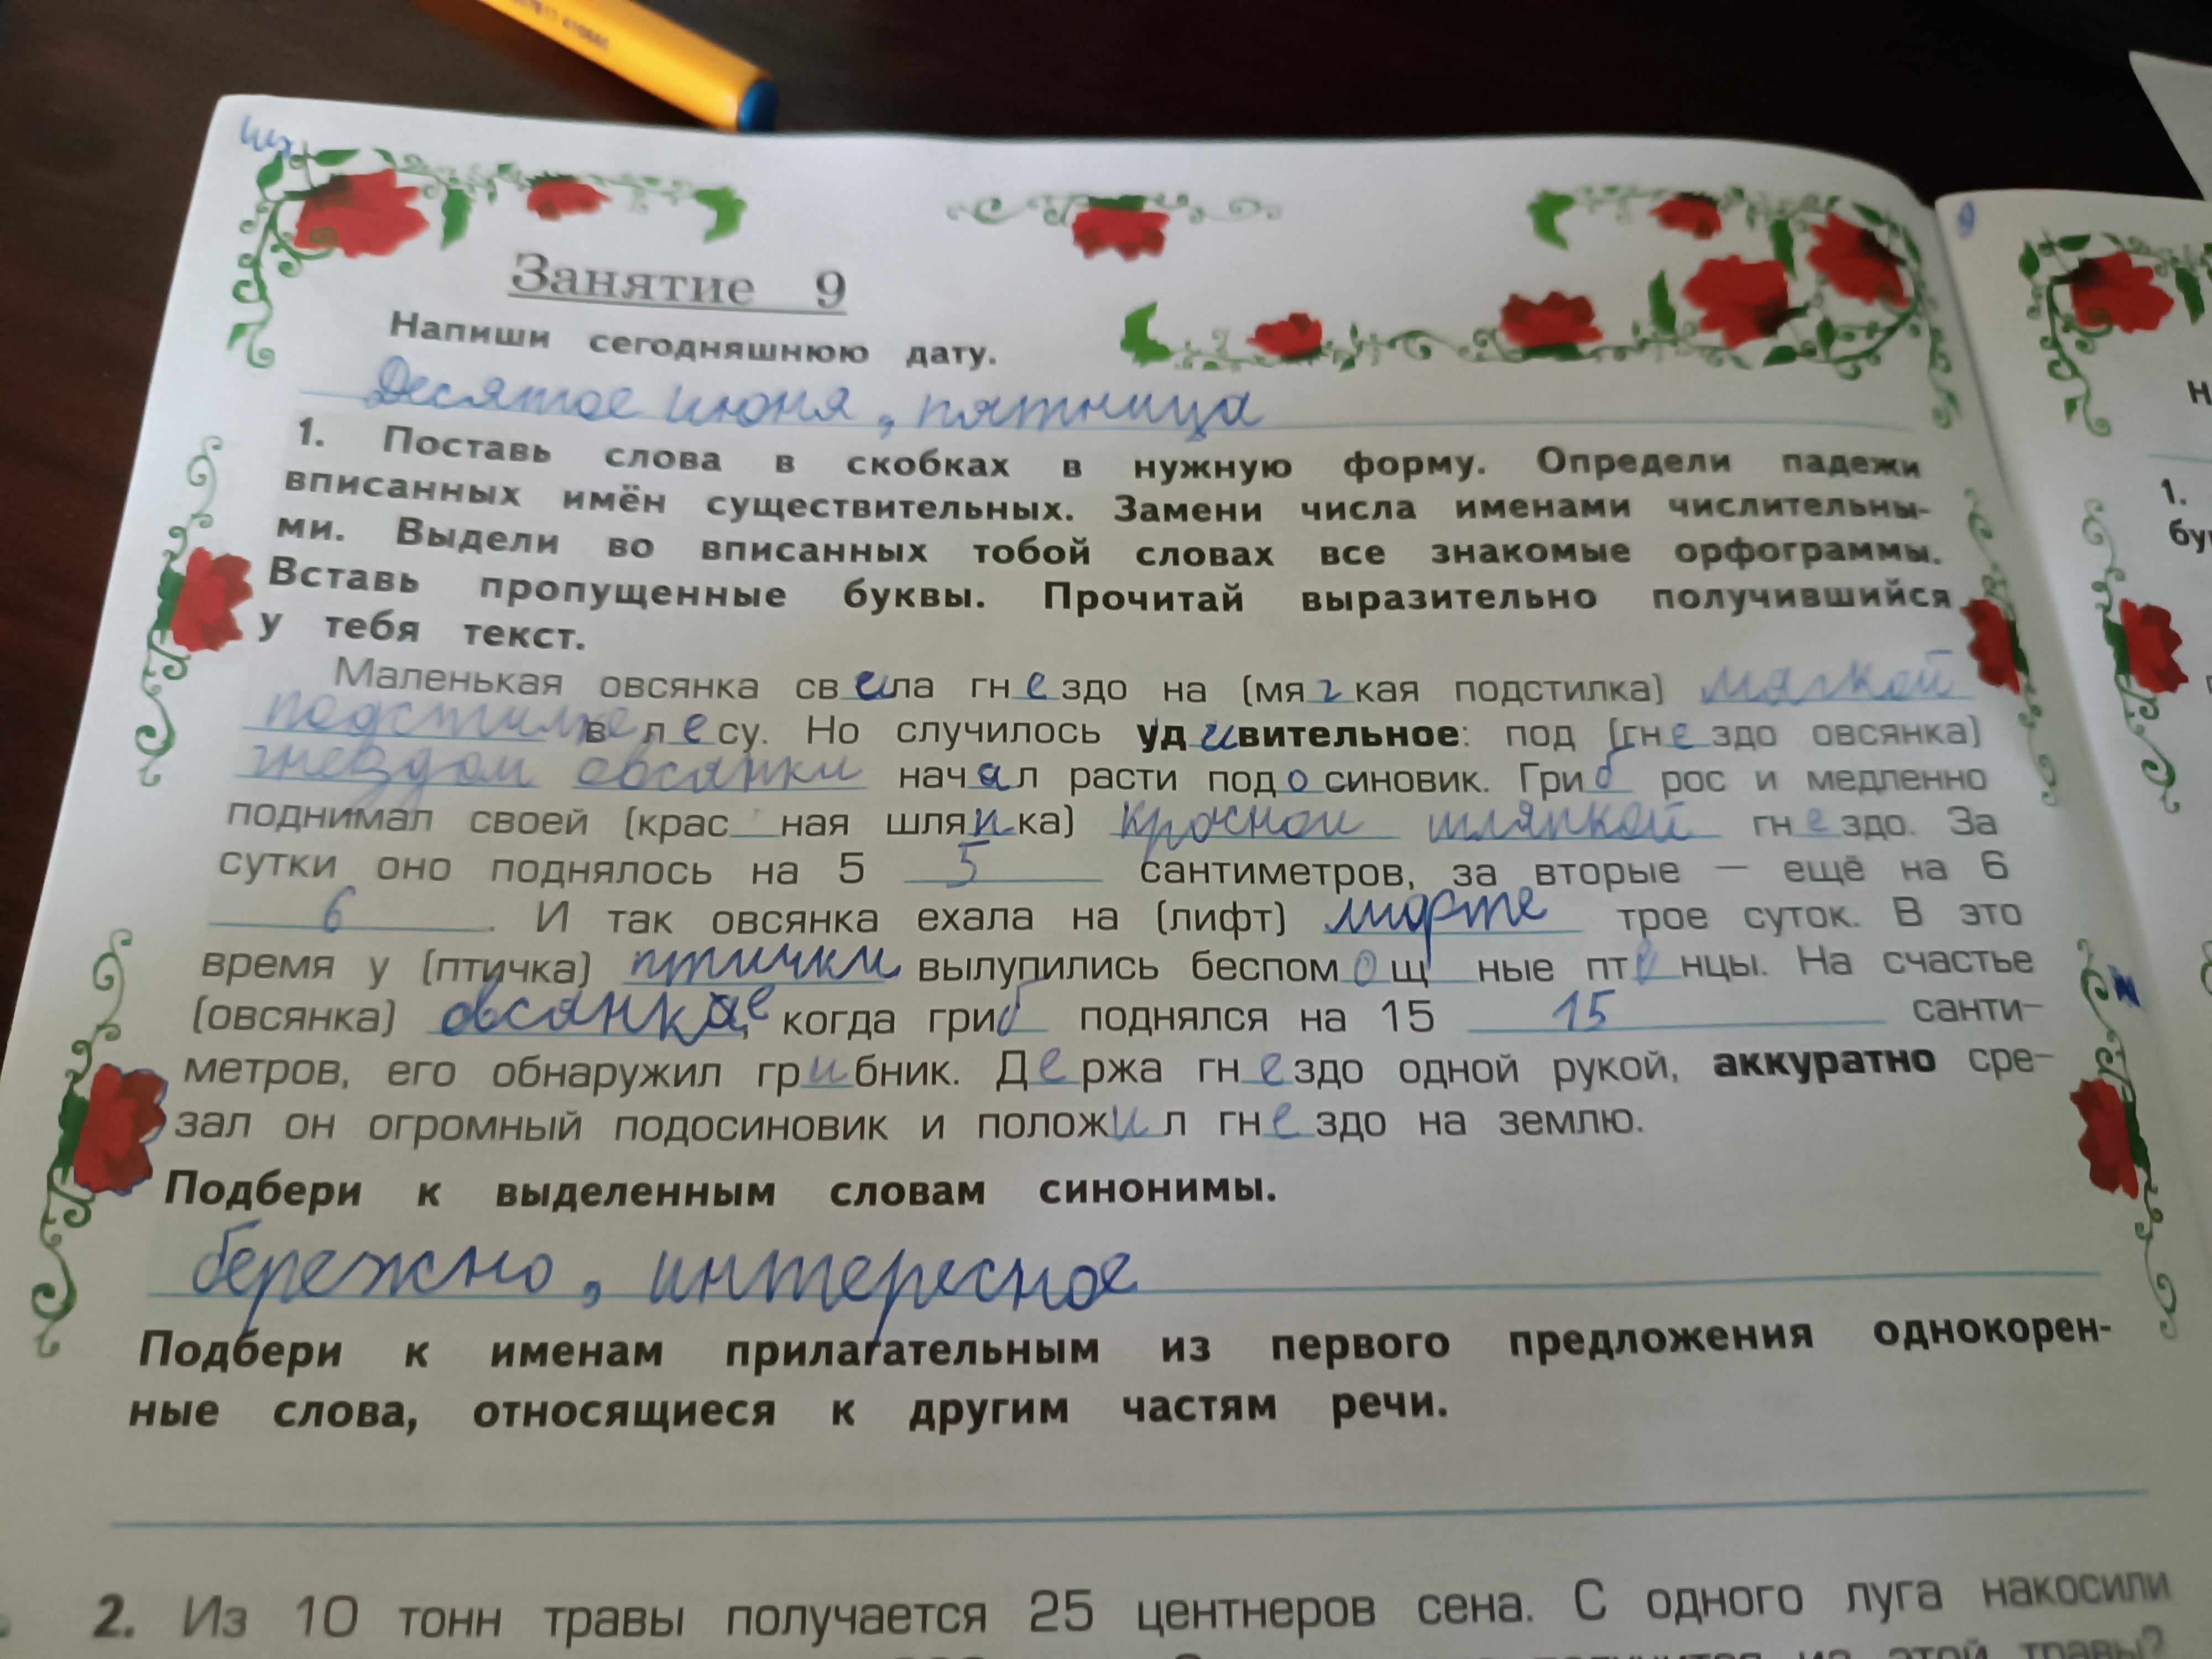 Занятие 9
Напиши сегодняшнюю дату.
Десятое июня, пятница
1. Поставь слова в скобках в нужную форму. Определи падежи
вписанных имён существительных. Замени числа именами числительны-
ми. Выдели во вписанных тобой словах все знакомые орфограммы.
Вставь пропущенные буквы. Прочитай выразительно получившийся
у тебя текст.
Маленькая овсянка свила гнездо на (мягкая подстилка) мягкой
подстилке в лесу. Но случилось удивительное: под (гнездо овсянка)
гнездом овсянки начал расти подосиновик. Гриб рос и медленно
поднимал своей (крас_ная шляпка) красной шляпкой гнездо. За
сутки оно поднялось на 5 5 сантиметров, за вторые — ещё на 6
6. И так овсянка ехала на (лифт) лифте трое суток. В это
время у (птичка) птички вылупились беспомощ_ные птенцы. На счастье
(овсянка) овсянке, когда гриб поднялся на 15 15 санти-
метров, его обнаружил грибник. Держа гнездо одной рукой, аккуратно сре-
зал он огромный подосиновик и положил гнездо на землю.
Подбери к выделенным словам синонимы.
бережно, интересное
Подбери к именам прилагательным из первого предложения однокорен-
ные слова, относящиеся к другим частям речи.
2. Из 10 тонн травы получается 25 центнеров сена. С одного луга накосили
из этой травы?